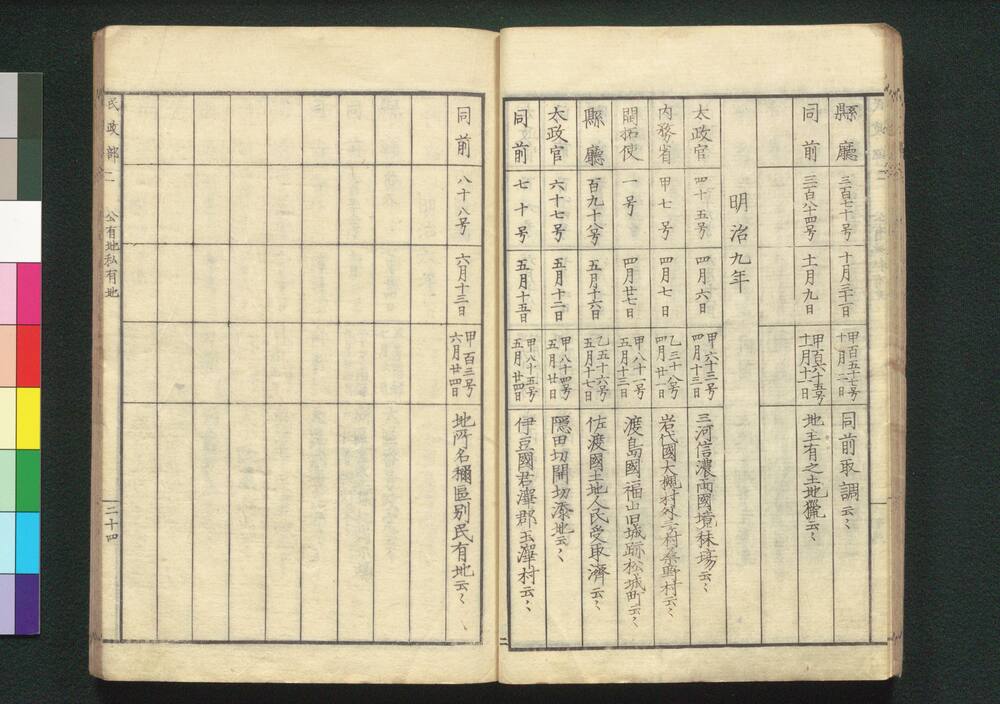 縣廳 三百七十号 十月三十一日 甲百五十七号 十一月二日 同前取調云々
同前 三百八十四号 十一月九日 甲百六十五号 十一月十一日 地主有之土地獵云々
明治九年
太政官 四十五号 四月六日 甲六十三号 四月十三日 三河信濃両國境秣場云々
内務省 甲七号 四月七日 乙三十八号 四月廿一日 岩代國大槻村外三村桑野村云々
開拓使 一号 四月廿七日 甲八十一号 五月十三日 渡島國福山旧城跡松城町云々
縣廳 百九十八号 五月十六日 乙五十六号 五月十七日 佐渡國土地人民受取濟云々
太政官 六十七号 五月十二日 甲八十四号 五月廿日 隠田切開切添地云々
同前 七十号 五月十五日 甲八十五号 五月廿四日 伊豆國君澤郡玉澤村云々
同前 八十八号 六月十三日 甲百三号 六月廿四日 地所名稱區别民有地云々
民政部二 公有地私有地 二十四